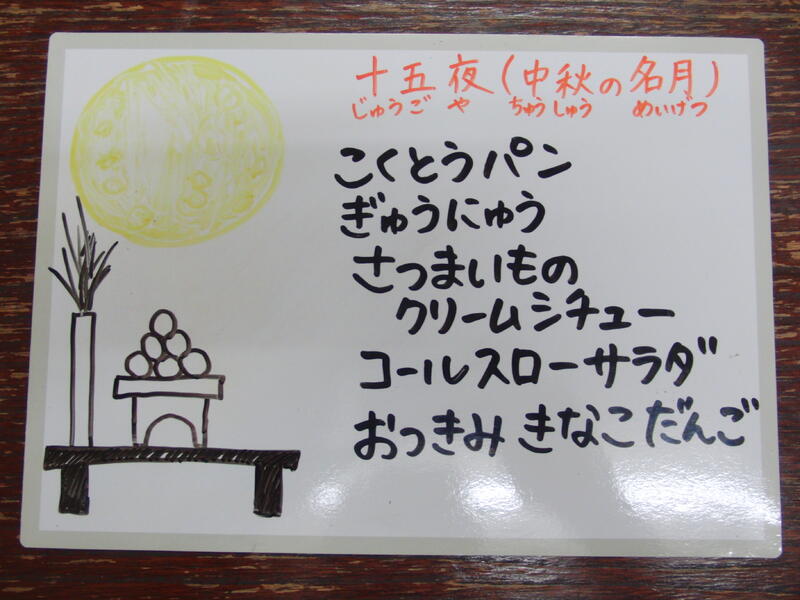 十五夜(中秋の名月)
じゅうごや ちゅうしゅう めいげつ
こくとうパン
ぎゅうにゅう
さつまいもの
クリームシチュー
コールスローサラダ
おつきみ きなこだんご